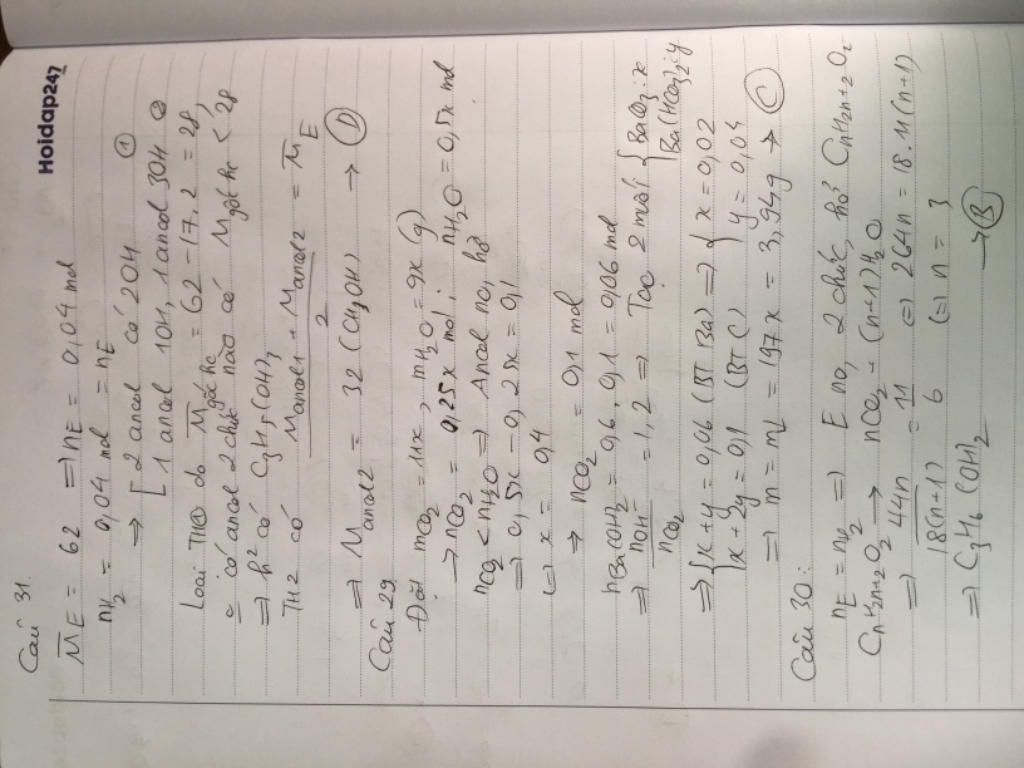 Hoidap247
Câu 31.
M̅_E = 62 ⇒ n_E = 0,04 mol
nH₂ = 0,04 mol = n_E
→ [ 2 ancol có 2OH ①
[ 1 ancol 1OH, 1 ancol 3OH ②
Loại TH① do M̅ gốc hc = 62 - 17.2 = 28,
có ancol 2 chức nào có M gốc hc < 28
⇒ h² có C₃H₅(OH)₃
TH2 có M ancol1 + M ancol2 / 2 = M̅_E
⇒ M ancol2 = 32 (CH₃OH) → Ⓓ
Câu 29
Đặt mCO₂ = 11x, mH₂O = 9x (g)
→ nCO₂ = 0,25x mol; nH₂O = 0,5x mol
nCO₂ < nH₂O ⇒ Ancol no, hở
⇒ 0,5x - 0,25x = 0,1
↳ x = 0,4
→ nCO₂ = 0,1 mol
nBa(OH)₂ = 0,6.0,1 = 0,06 mol
⇒ nOH⁻ / nCO₂ = 1,2 ⇒ Tạo 2 muối { BaCO₃: x
Ba(HCO₃)₂: y
⇒ { x + y = 0,06 (BT Ba) ⇒ { x = 0,02
x + 2y = 0,1 (BT C) y = 0,04
⇒ m = m↓ = 197x = 3,94g → Ⓒ
Câu 30:
n_E = nH₂ ⇒ E no, 2 chức, hở CₙH₂ₙ₊₂O₂
CₙH₂ₙ₊₂O₂ → nCO₂ + (n+1)H₂O
⇒ 44n / 18(n+1) = 11 / 6 ⇔ 264n = 18.11(n+1)
⇔ n = 3
⇒ C₃H₆(OH)₂ → Ⓑ